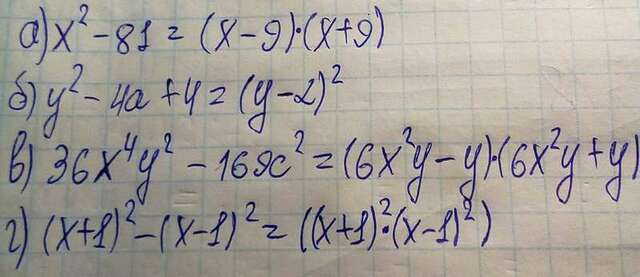 а) x² - 81 = (x-9)·(x+9)
б) y² - 4a + 4 = (y-2)²
в) 36x⁴y² - 169c² = (6x²y-y)·(6x²y+y)
г) (x+1)² - (x-1)² = ((x+1)²·(x-1)²)